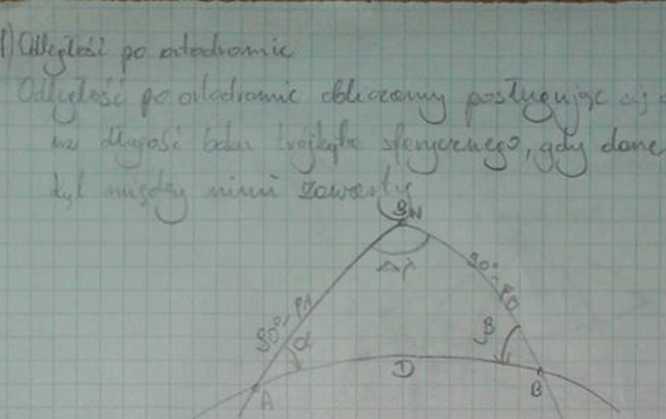 1) Odległość po ortodromie
Odległość po ortodromie obliczamy posługując się
na długość boku trójkąta sferycznego, gdy dane
kąt między nimi zawarty
BN
Δλ
90°-φA
90°-φB
α
β
D
A
B